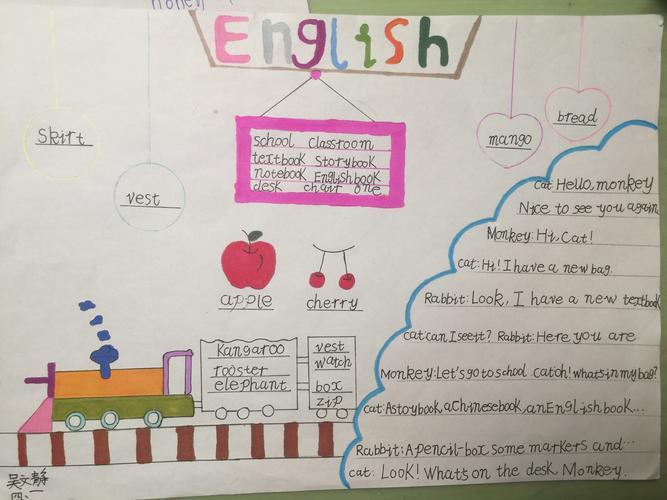 English
Skirt
vest
mango
bread
school classroom
textbook storybook
notebook Englishbook
desk chair one
apple
cherry
Kangaroo
rooster
elephant
vest
watch
box
zip
cat: Hello, monkey
Nice to see you again
Monkey: Hi, Cat!
cat: Hi! I have a new bag.
Rabbit: Look, I have a new textbook
cat: can I see it? Rabbit: Here you are
Monkey: Let's go to school cat: oh! what's in my bag?
cat: A storybook, a Chinese book, an English book...
Rabbit: A pencil-box some markers and...
cat: LOOK! What's on the desk Monkey.
吴文静
四、一